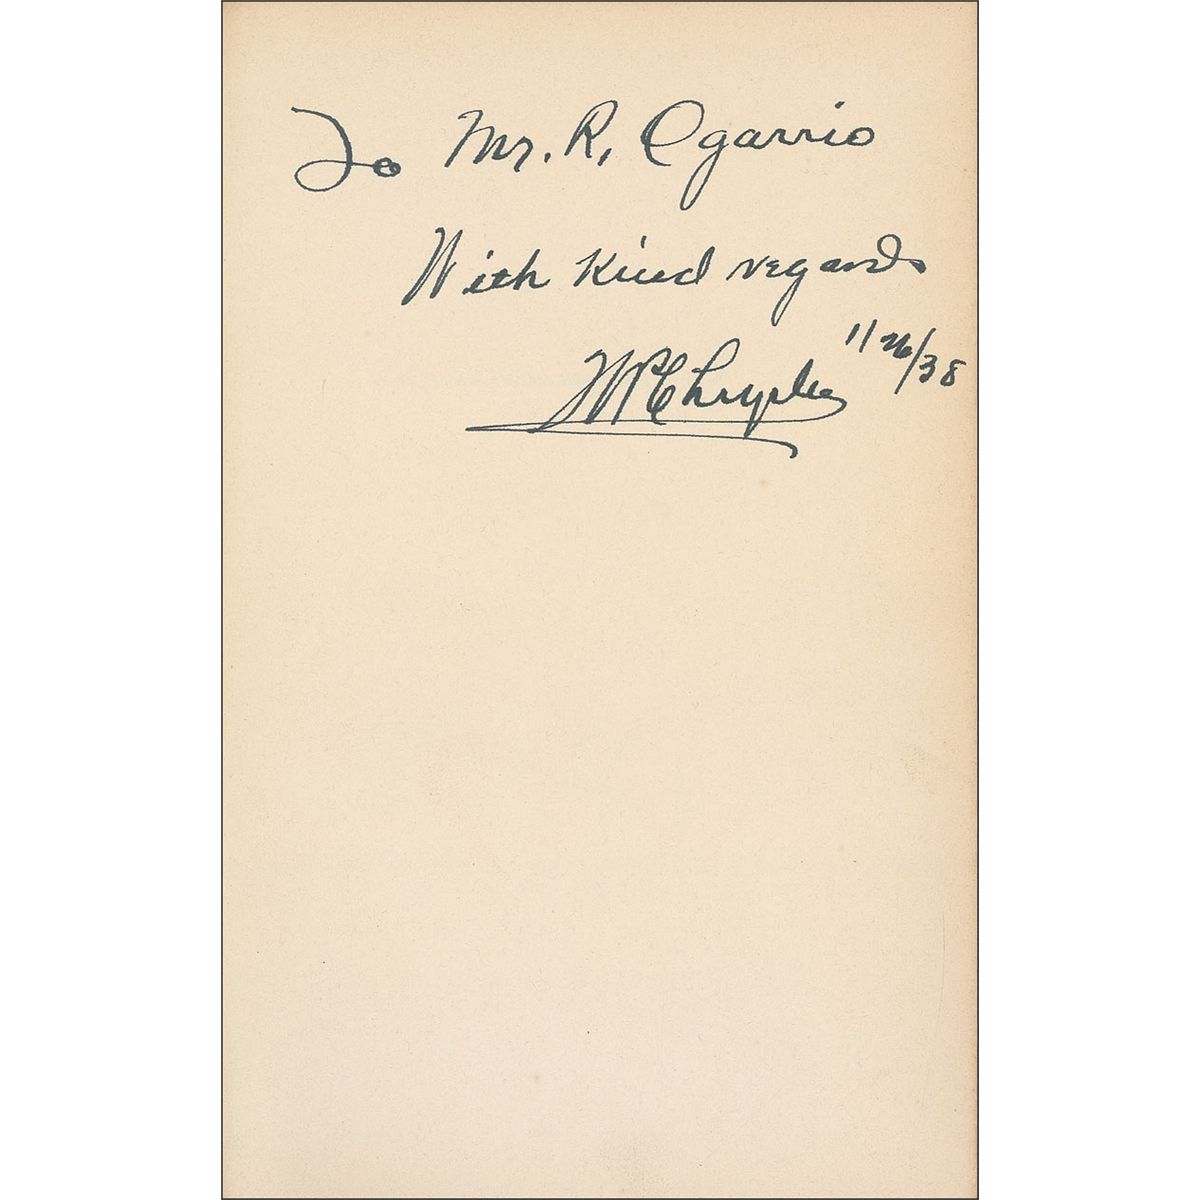 To Mr. R. Ogarrio
With kind regards
WPChrysler 11 26/38